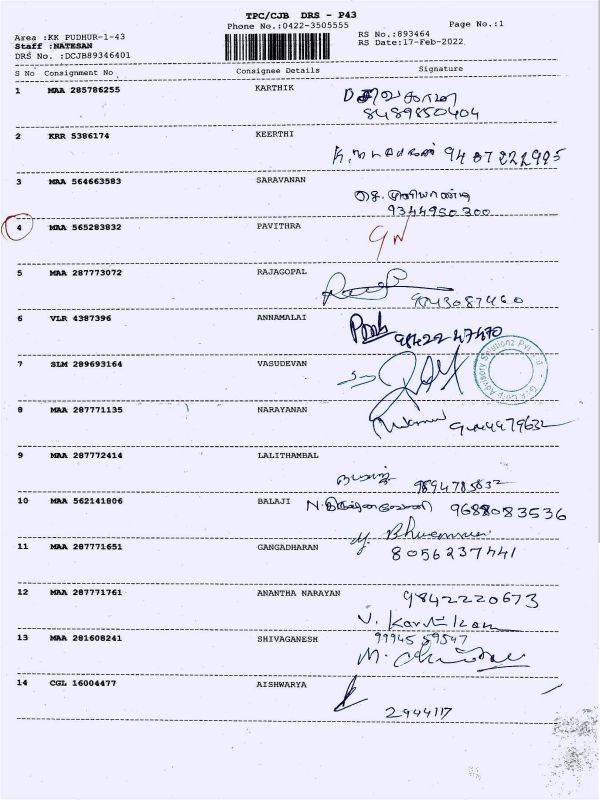 TPC/CJB DRS - P43
Phone No.:0422-3505555
Page No.:1
Area :KK PUDHUR-1-43
RS No.:893464
Staff :NATESAN
RS Date:17-Feb-2022
DRS No. :DCJB89346401
S No Consignment No Consignee Details Signature
1 MAA 285786255 KARTHIK
8489850404
2 KRR 5386174 KEERTHI
3 MAA 564663583 SARAVANAN
9344950300
4 MAA 565283832 PAVITHRA
5 MAA 287773072 RAJAGOPAL
6 VLR 4387396 ANNAMALAI
98422 47470
7 SLM 289693164 VASUDEVAN
8 MAA 287771135 NARAYANAN
9 MAA 287772414 LALITHAMBAL
10 MAA 562141806 BALAJI
9688083536
11 MAA 287771651 GANGADHARAN
8056237441
12 MAA 287771761 ANANTHA NARAYAN
9842220673
13 MAA 281608241 SHIVAGANESH
99945 59547
14 CGL 16004477 AISHWARYA
2944117